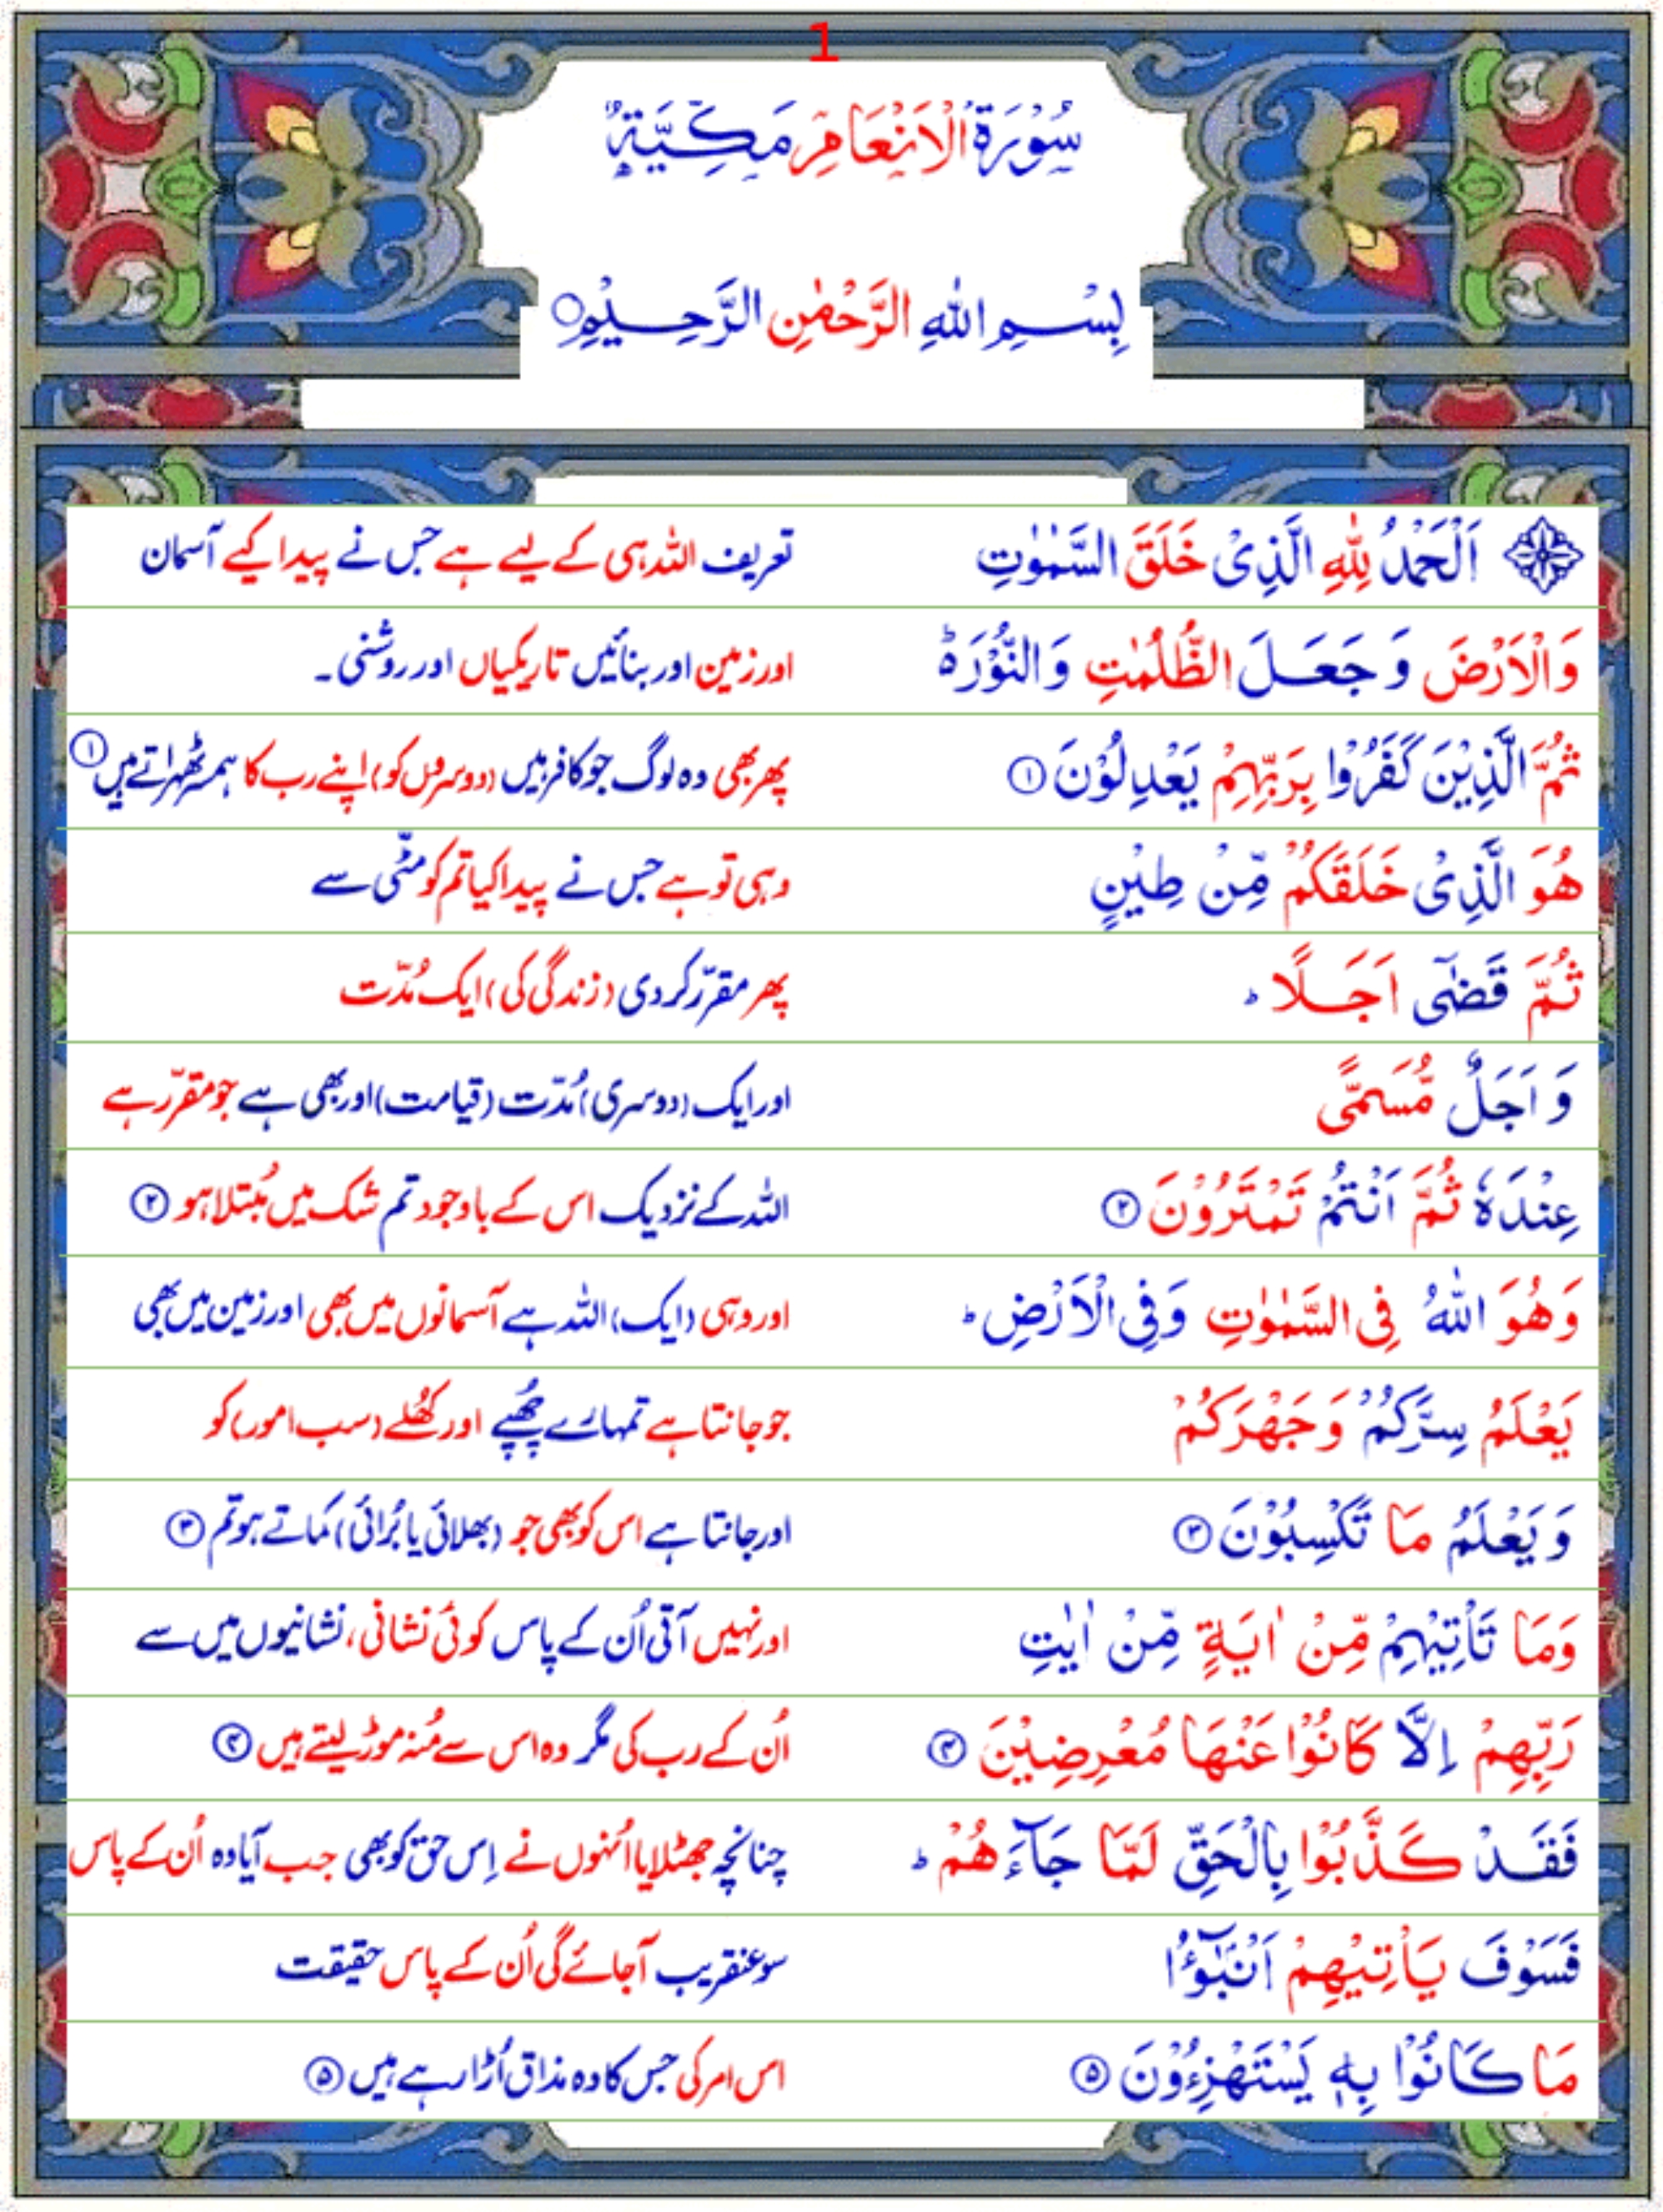 1
سُوْرَةُ الْاَنْعَامِ مَکِّیَّةٌ
بِسْمِ اللّٰهِ الرَّحْمٰنِ الرَّحِیْمِ○
اَلْحَمْدُ لِلّٰهِ الَّذِیْ خَلَقَ السَّمٰوٰتِ تعریف اللہ ہی کے لیے ہے جس نے پیدا کیے آسمان
وَالْاَرْضَ وَ جَعَلَ الظُّلُمٰتِ وَالنُّوْرَ ؕ۬ اور زمین اور بنائیں تاریکیاں اور روشنی۔
ثُمَّ الَّذِیْنَ کَفَرُوْا بِرَبِّهِمْ یَعْدِلُوْنَ ① پھر بھی وہ لوگ جو کافر ہیں (دوسروں کو) اپنے رب کا ہمسر ٹھہراتے ہیں ①
هُوَ الَّذِیْ خَلَقَکُمْ مِّنْ طِیْنٍ وہی تو ہے جس نے پیدا کیا تم کو مٹّی سے
ثُمَّ قَضٰۤی اَجَلًا ؕ پھر مقرّر کر دی (زندگی کی) ایک مُدّت
وَ اَجَلٌ مُّسَمًّی اور ایک (دوسری) مُدّت (قیامت) اور بھی ہے جو مقرّر ہے
عِنْدَهٗ ثُمَّ اَنْتُمْ تَمْتَرُوْنَ ② اللہ کے نزدیک اس کے باوجود تم شک میں مُبتلا ہو ②
وَهُوَ اللّٰهُ فِی السَّمٰوٰتِ وَفِی الْاَرْضِ ؕ اور وہی (ایک) اللہ ہے آسمانوں میں بھی اور زمین میں بھی
یَعْلَمُ سِرَّکُمْ وَجَهْرَکُمْ جو جانتا ہے تمہارے چُھپے اور کُھلے (سب امور) کو
وَ یَعْلَمُ مَا تَکْسِبُوْنَ ③ اور جانتا ہے اس کو بھی جو (بھلائی یا بُرائی) کماتے ہو تم ③
وَمَا تَاْتِیْهِمْ مِّنْ اٰیَةٍ مِّنْ اٰیٰتِ اور نہیں آتی اُن کے پاس کوئی نشانی، نشانیوں میں سے
رَبِّهِمْ اِلَّا کَانُوْا عَنْهَا مُعْرِضِیْنَ ④ اُن کے رب کی مگر وہ اس سے مُنہ موڑ لیتے ہیں ④
فَقَدْ کَذَّبُوْا بِالْحَقِّ لَمَّا جَآءَهُمْ ؕ چنانچہ جھٹلایا اُنہوں نے اِس حق کو بھی جب آیا وہ اُن کے پاس
فَسَوْفَ یَاْتِیْهِمْ اَنْۢبٰٓؤُا سو عنقریب آجائے گی اُن کے پاس حقیقت
مَا کَانُوْا بِهٖ یَسْتَهْزِءُوْنَ ⑤ اس امر کی جس کا وہ مذاق اُڑا رہے ہیں ⑤